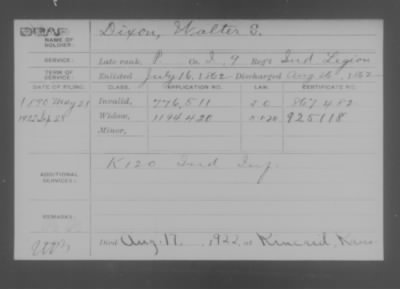 DEAF
NAME OF SOLDIER: Dixon, Walter S.
SERVICE: Late rank, P Co. I, 9 Reg't Ind Legion
TERM OF SERVICE: Enlisted July 16, 1862 Discharged Aug 1862
DATE OF FILING. CLASS. APPLICATION NO. LAW. CERTIFICATE NO.
1890 May 21 Invalid, 776,511 867,482
1922 Sep 28 Widow, 1194420 925118
Minor,
ADDITIONAL SERVICES: K 120 Ind Inf.
REMARKS:
Died Aug. 17, 1922, at Kans